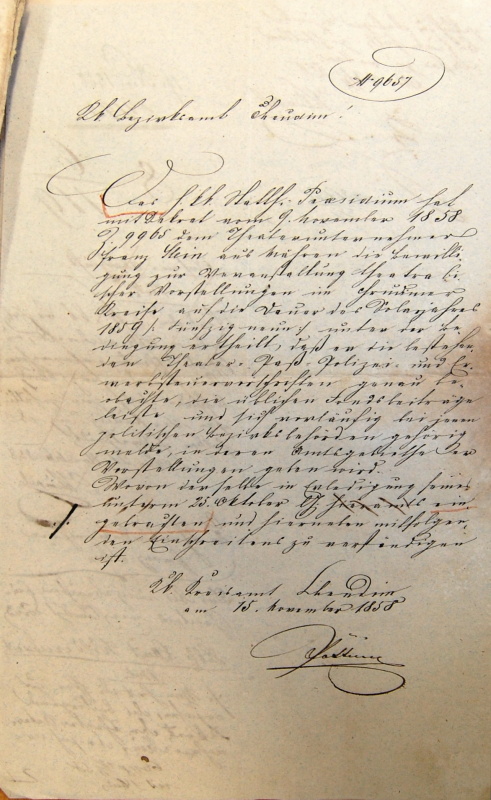 N 9657
KK. Bezirksamt Chrudim!
Das h. kk. Statth. Præsidium hat
mit Dekret vom 9. November 1858
Z. 9965 dem Theaterunternehmer
Franz Stein aus Mähren die Bewilli-
gung zur Veranstaltung theatrali-
scher Vorstellungen im Chrudimer
Kreise auf die Dauer des Solarjahres
1859 /: fünfzig neun :/ unter der Be-
dingung ertheilt, daß er die bestehen-
den Theater- Paß- Polizei- und Er-
werbsteuervorschriften genau be-
obachte, die üblichen Fondsbeiträge
leiste und sich vorläufig bei jenen
politischen Bezirksbehörden gehörig
melde, in deren Amtsgebiethe er
Vorstellungen geben wird.
Wovon derselbe in Erledigung seines
unterm 25. Oktober hieramts ein-
gebrachten und hierneben mitfolgen-
den Einschreitens zu verständigen
ist.
KK. Kreisamt Chrudim
am 15. November 1858